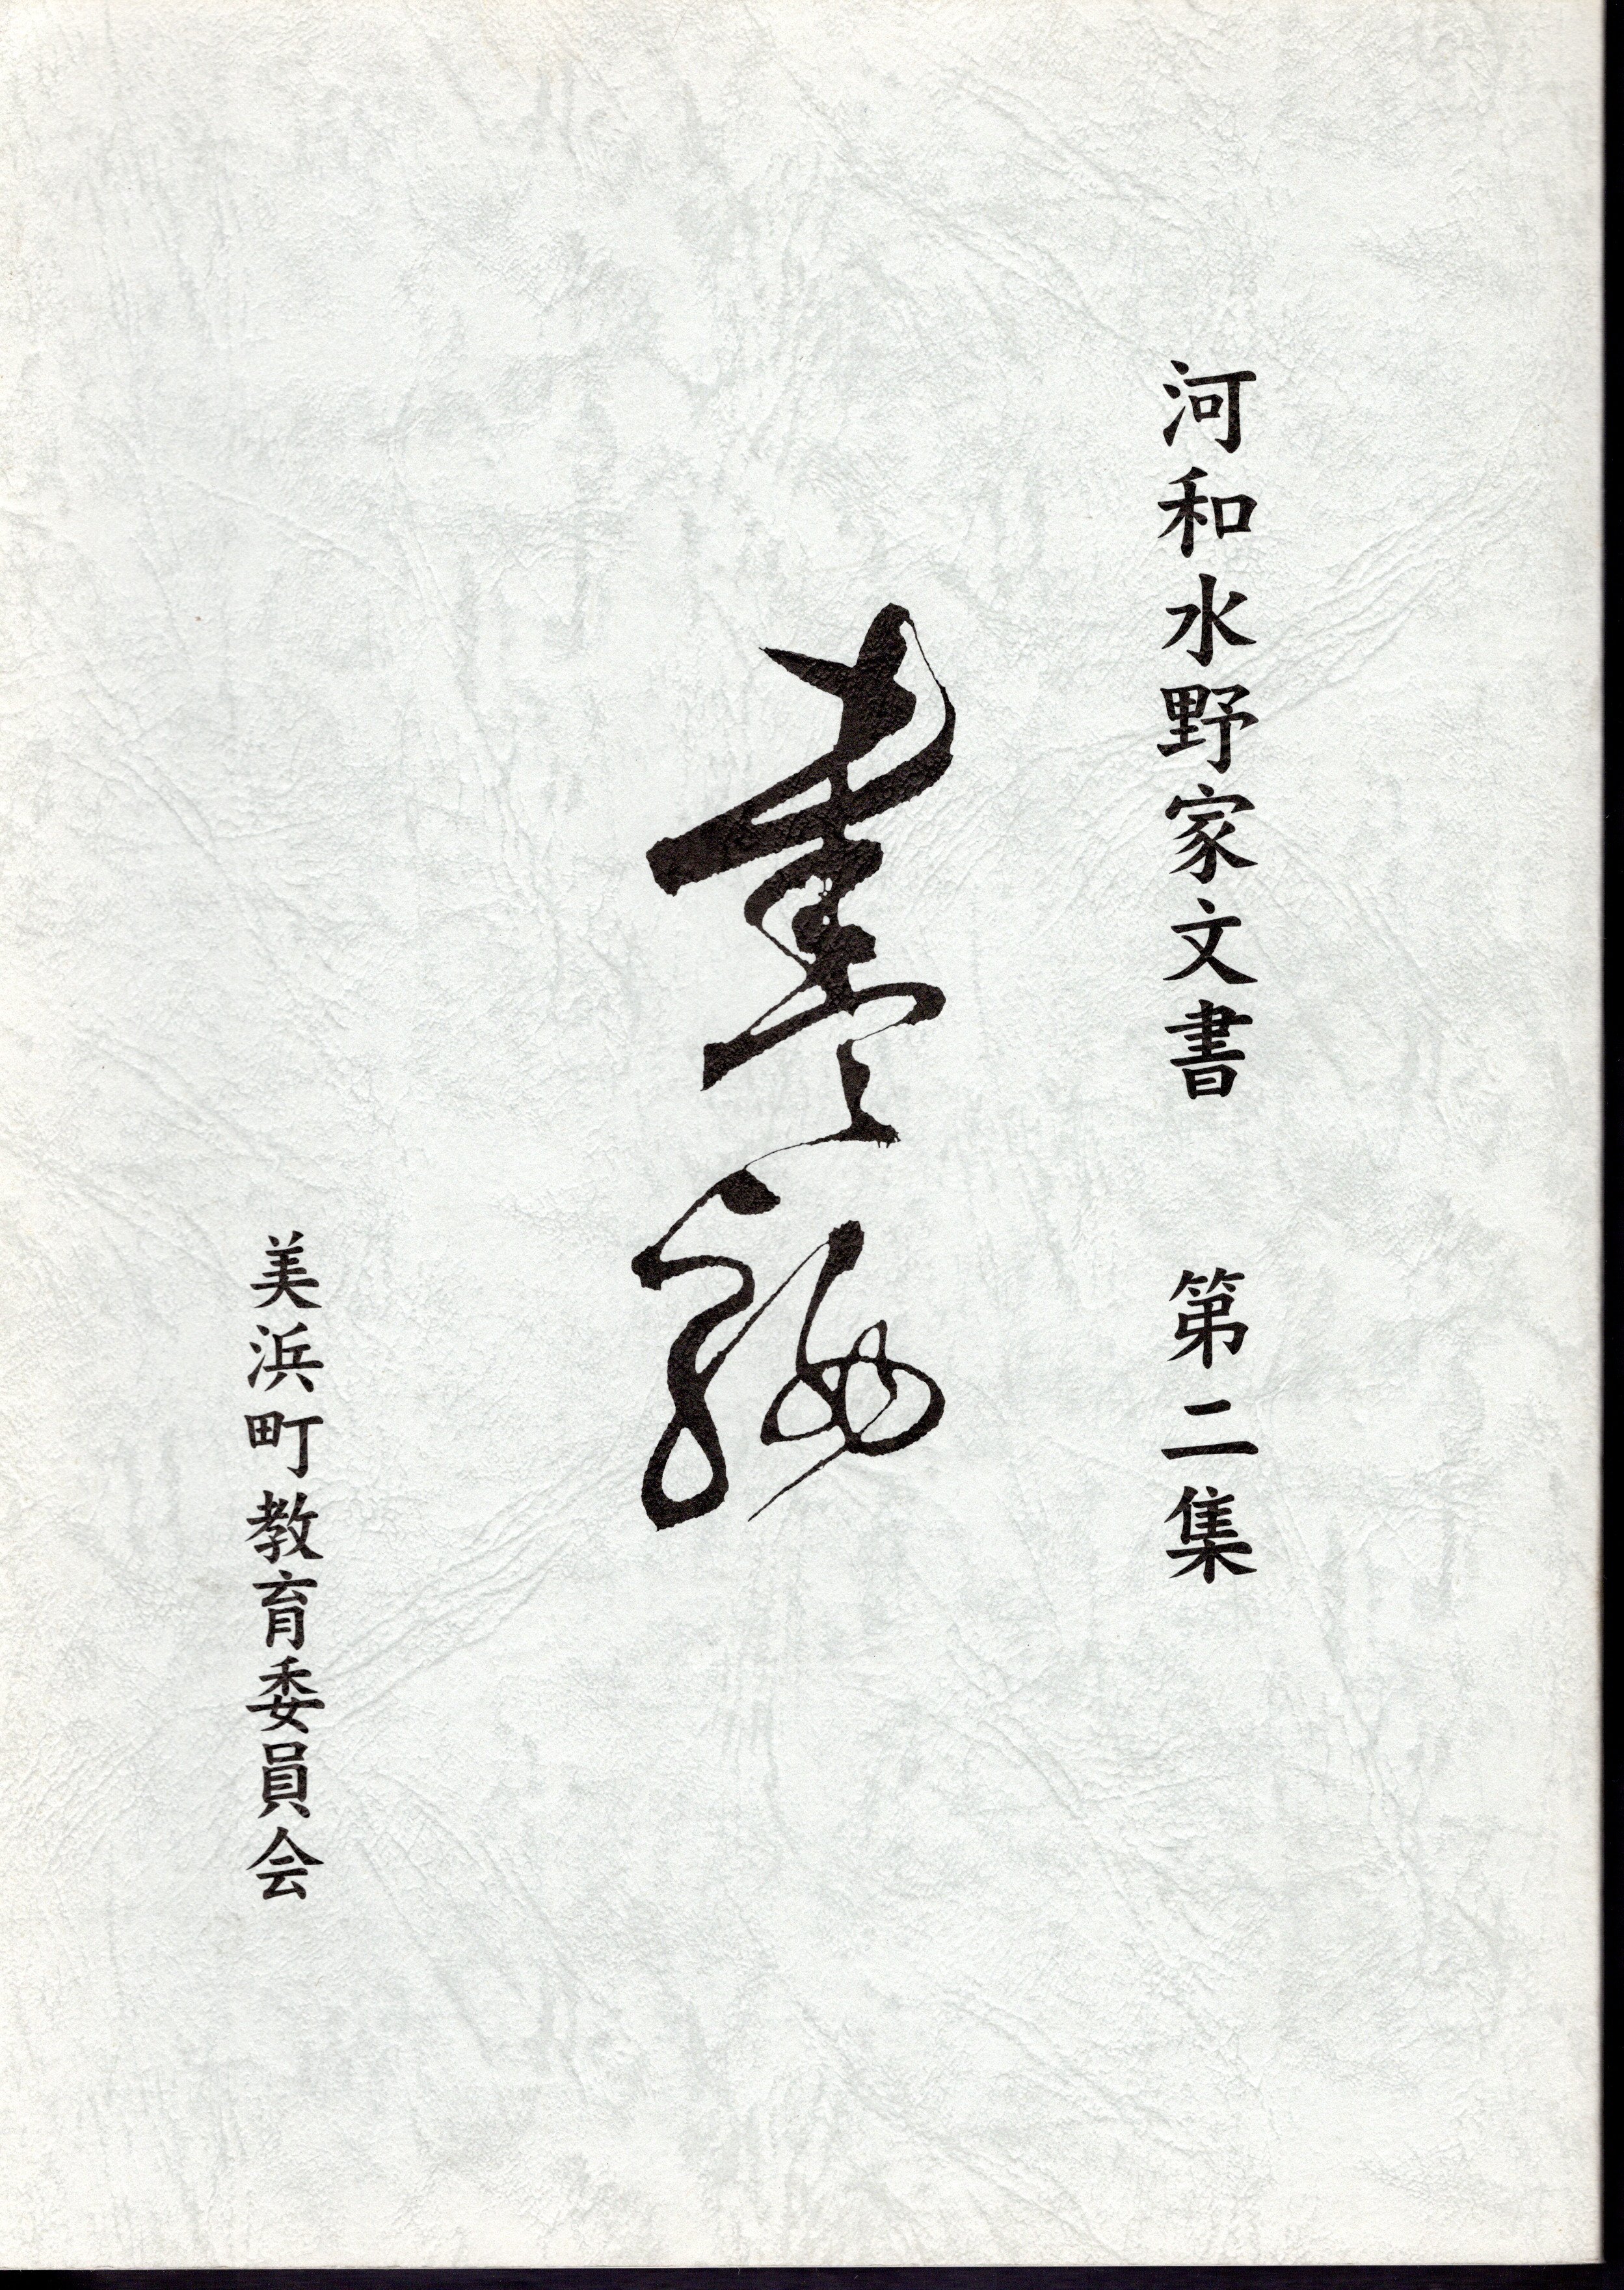 河和水野家文書　第二集
美浜町教育委員会